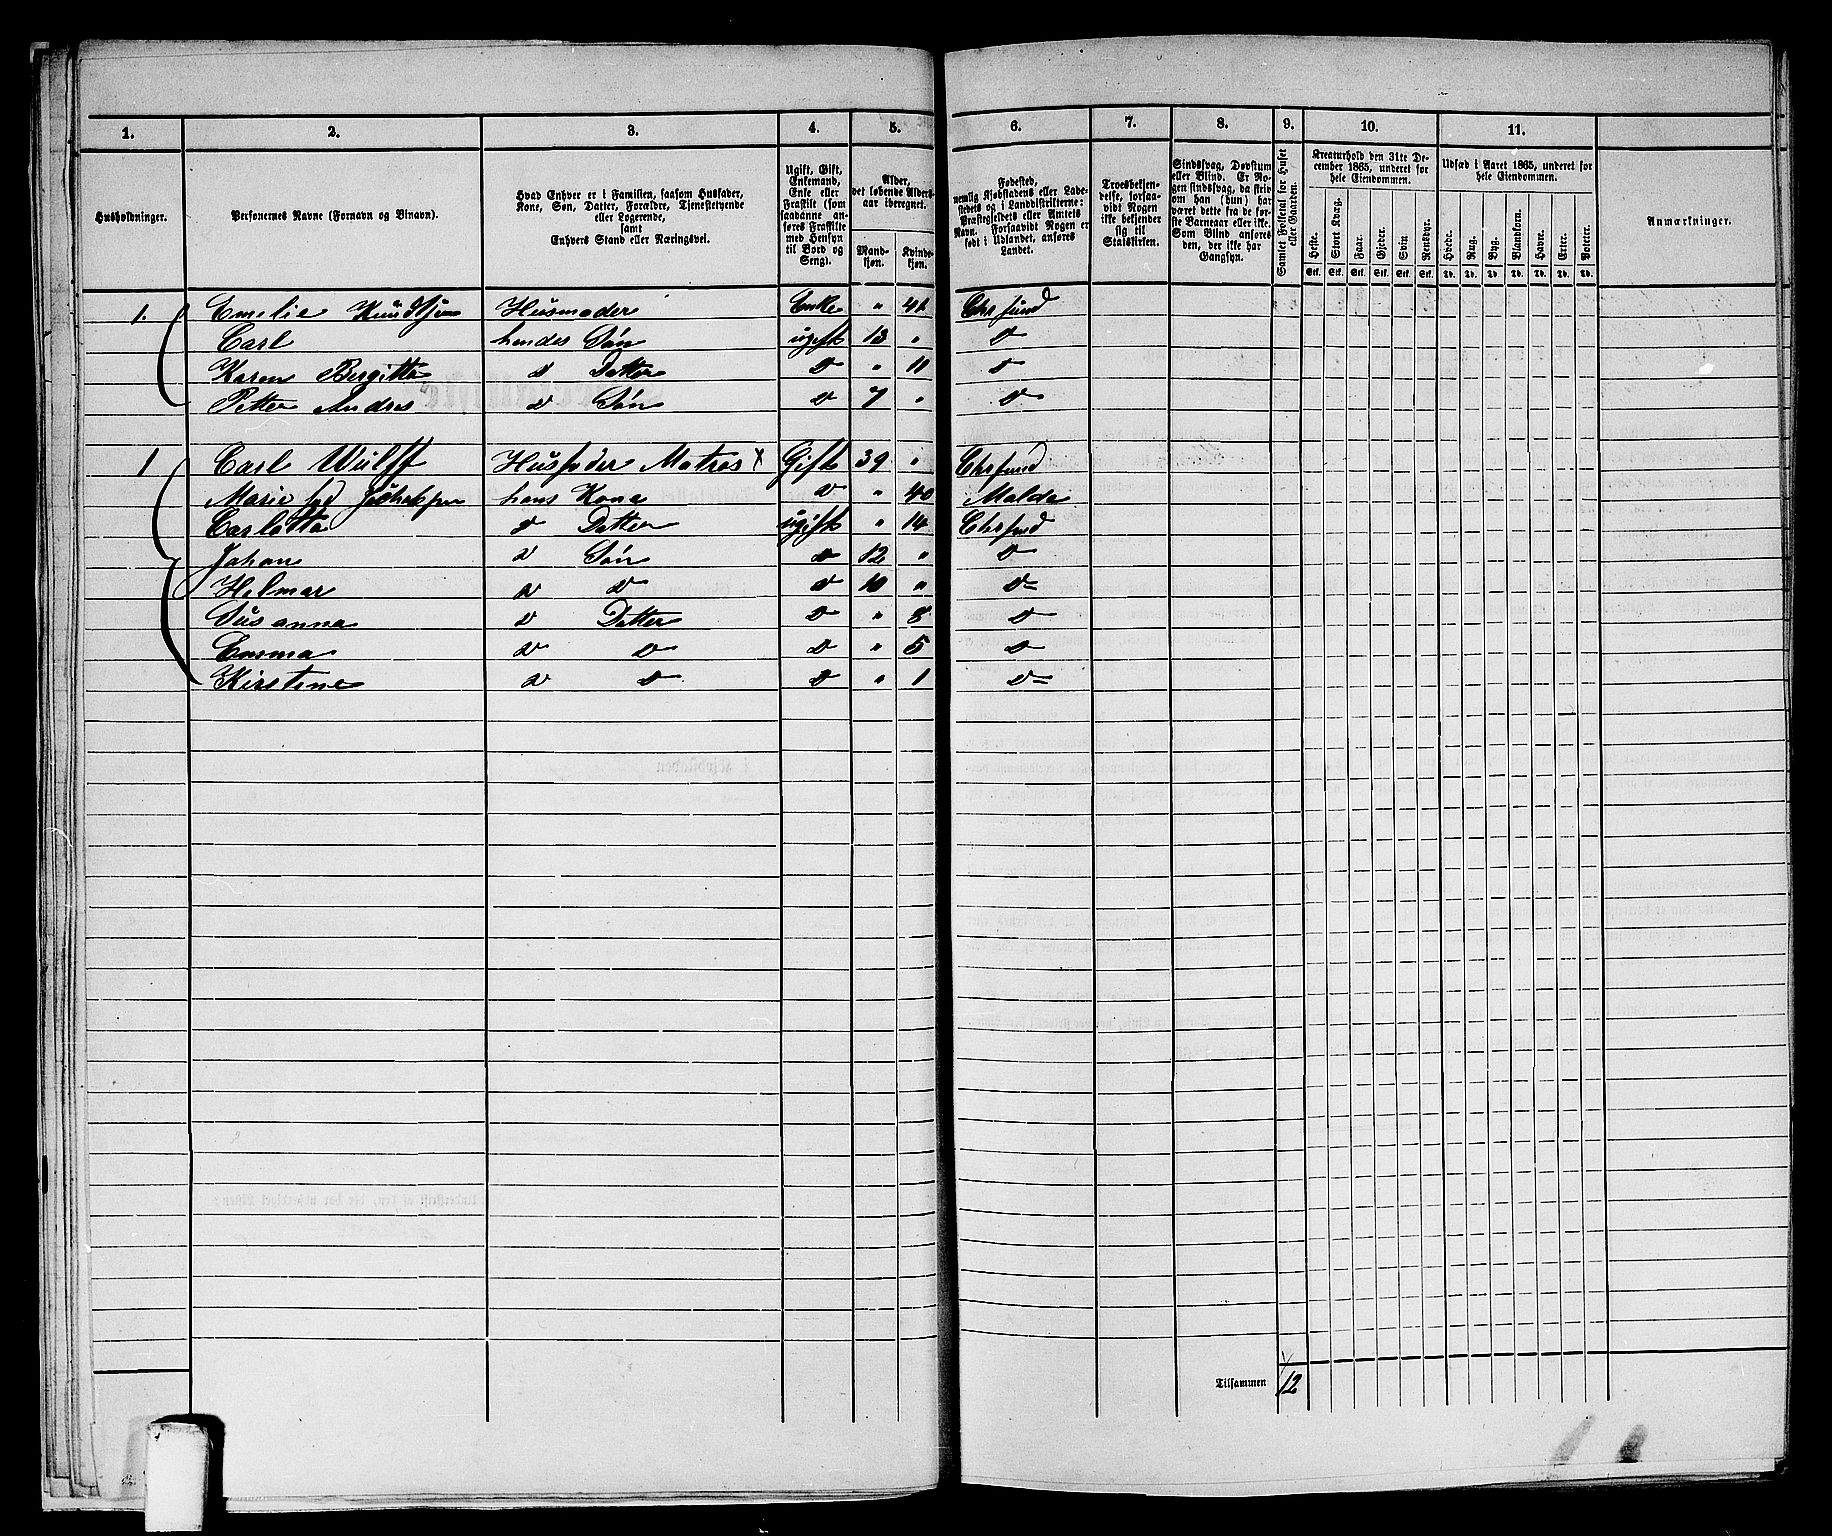 1. 2. 3. 4. 5. 6. 7. 8. 9. 10. 11.
Husholdninger.
Personernes Navne (Fornavn og Tilnavn).
Hvad Enhver er i Familien, saasom Husfader,
Kone, Søn, Datter, Forældre, Tjenestetyende
eller Logerende,
samt
Enhvers Stand eller Næringsvei.
Ugift, Gift,
Enkemand,
Enke eller
Fraskilt (som
saadanne an-
føres Fraskilte
med Hensyn
til Bord og
Seng).
Alder,
det løbende Alders-
aar iberegnet.
Mand-
kjøn.
Kvinde-
kjøn.
Fødested,
nemlig Kjøbstadens eller Lade-
stedets og i Landdistrikterne:
Præstegjeldets eller Amtets
Navn. Forsaavidt Nogen er
født i Udlandet, anføres
Landet.
Troesbekjen-
delse, forsaa-
vidt Nogen
ikke bekjender
sig til
Statskirken.
Sindssvag, Døvstum
eller Blind. Er No-
gen sindssvag, da skriv
om han (hun) har
været dette fra de før-
ste Barneaar eller ikke.
Som Blind anføres
den, der ikke har
Gangsyn.
Samlet Folketal for Huset
eller Gaarden.
Kreaturhold den 31te De-
cember 1865, underet for
hele Eiendommen.
Heste. Stort Kvæg. Faar. Gjeder. Svin. Rensdyr.
Stk. Stk. Stk. Stk. Stk. Stk.
Udsæd i Aaret 1865, underet for
hele Eiendommen.
Hvede. Rug. Byg. Blandkorn. Havre. Erter. Poteter.
Td. Td. Td. Td. Td. Td. Td.
Anmærkninger.
1. Emilie Knudtsen Husmoder Enke " 41 Chrsund
Carl hendes Søn ugift 13 " D
Karen Bergitta D Datter D " 11 D
Petter Andres D Søn D 7 " D
1 Carl Wulff Husfader Matros X Gift 39 " Chrsund
Marie fød hans Kone D " 40 Molde
Carlotta D Datter ugift " 14 Chrsund
Johan D Søn D 12 " D
Helmar D D D 10 " D
Susanna D Datter D " 8 D
Emma D D D " 5 D
Kirstine D D D " 1 D
Tilsammen 12